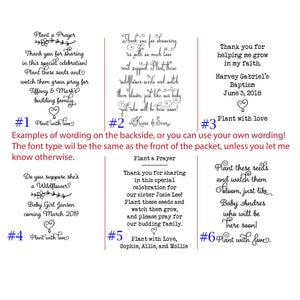 Plant a Prayer
Thank you for sharing
in this special celebration!
Plant these seeds and
watch them grow pray for
Tiffany & Mark's
budding family.
Plant with love
#1
Thank you for showering
us with so much love
and support. Plant these
wildflower seeds and watch
them bloom, just like our baby
who will be here soon!
#2
Thank you for
helping me grow
in my faith.
Harvey Gabriel's
Baptism
June 3, 2018
Plant with love
#3
Examples of wording on the backside, or you can use your own wording!
The font type wil be the same as the front of the packet, unless you let me
know otherwise.
Do you suppose she's
a Wildflower?
Baby Girl Jensen
coming March 2019
Plant with love
#4
Plant a Prayer
Thank you for sharing
in this special
celebration for
our sister Josie Lee!
Plant these seeds and
watch them grow,
and please pray for
our budding family.
Plant with Love,
Sophie, Allie, and Mollie
#5
Plant these seeds
and watch them
bloom, just like
Baby Andres
who will be
here soon!
Plant with love
#6